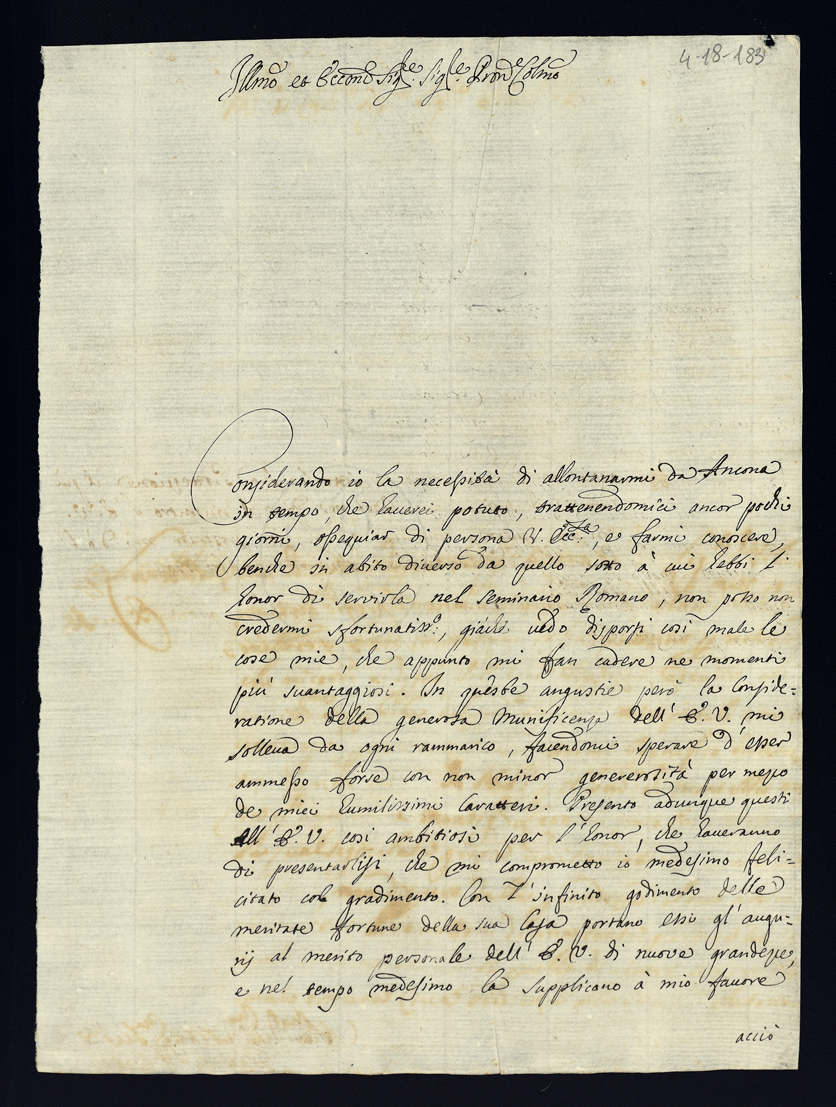 4-18-183
Illmo et Eccmo Sigre: Sigre Pron Colmo
Considerando io la necessità di allontanarmi da Ancona
in tempo, che haverei potuto, trattenendomici ancor pochi
giorni, ossequiar di persona V. Ecc:za, e farmi conoscere,
benche in abito diverso da quello sotto à cui hebbi l'
honor di servirla nel Seminario Romano, non posso non
credermi sfortunatiss:o, giàchè vedo disporsi così male le
cose mie, che appunto mi fan cadere ne momenti
più svantaggiosi. In queste angustie però la Conside=
ratione della generosa Munificenza dell' E. V. mi
solleva da ogni rammarico, facendomi sperare d'esser
ammesso forse con non minor genererosità per mezzo
de miei humilissimi Caratteri. Presento adunque questi
all' E. V. così ambitiosi per l'honor, che haveranno
di presentarlisi, che mi comprometto io medesimo feli=
citato col gradimento. Con l'infinito godimento delle
meritate fortune della sua Casa portano essi gl'augu=
rij al merito personale dell' E. V. di nuove grandezze,
e nel tempo medesimo la supplicano à mio favore
acciò